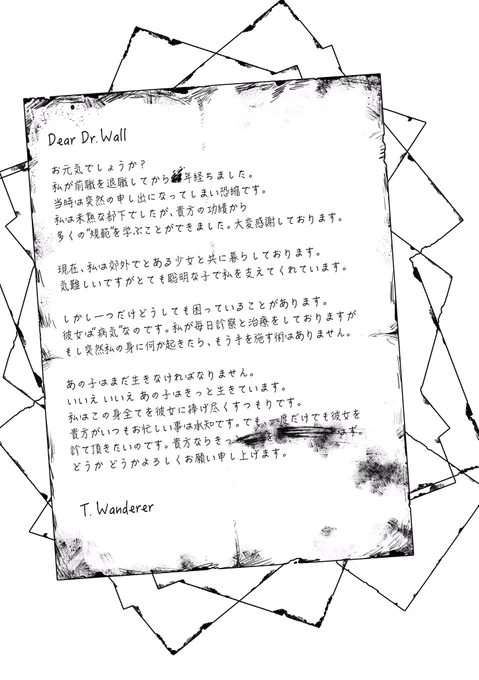 Dear Dr. Wall
お元気でしょうか？
私が前職を退職してから年経ちました。
当時は突然の申し出になってしまい恐縮です。
私は未熟な部下でしたが、貴方の功績から
多くの"規範"を学ぶことができました。大変感謝しております。
現在、私は郊外でとある少女と共に暮らしております。
気難しいですがとても聡明な子で私を支えてくれています。
しかし一つだけどうしても困っていることがあります。
彼女は"病気"なのです。私が毎日診察と治療をしておりますが
もし突然私の身に何か起きたら、もう手を施す術はありません。
あの子はまだ生きなければなりません。
いいえ いいえ あの子はきっと生きています。
私はこの身全てを彼女に捧げ尽くすつもりです。
貴方がいつもお忙しい事は承知です。でも、一度だけでも彼女を
診て頂きたいのです。貴方ならきっ
どうか どうかよろしくお願い申し上げます。
T. Wanderer